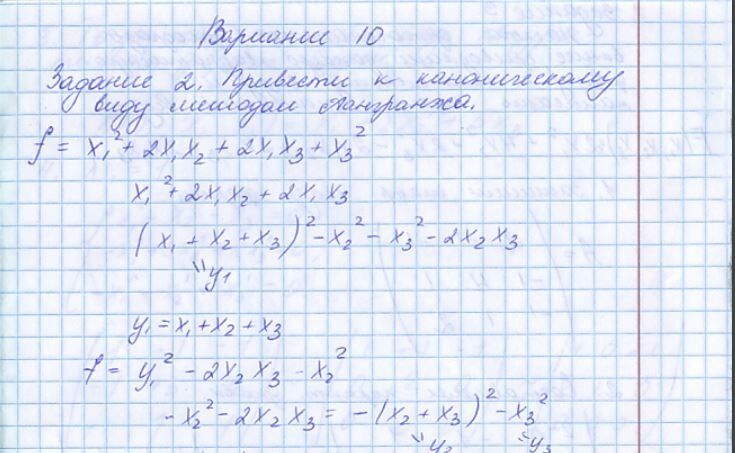 Вариант 10
Задание 2. Привести к каноническому
виду методом Лангранжа.
f = x₁² + 2x₁x₂ + 2x₁x₃ + x₃²
x₁² + 2x₁x₂ + 2x₁x₃
(x₁ + x₂ + x₃)² - x₂² - x₃² - 2x₂x₃
"y₁
y₁ = x₁ + x₂ + x₃
f = y₁² - 2x₂x₃ - x₂²
- x₂² - 2x₂x₃ = -(x₂ + x₃)² - x₃²
"y₂ =y₃